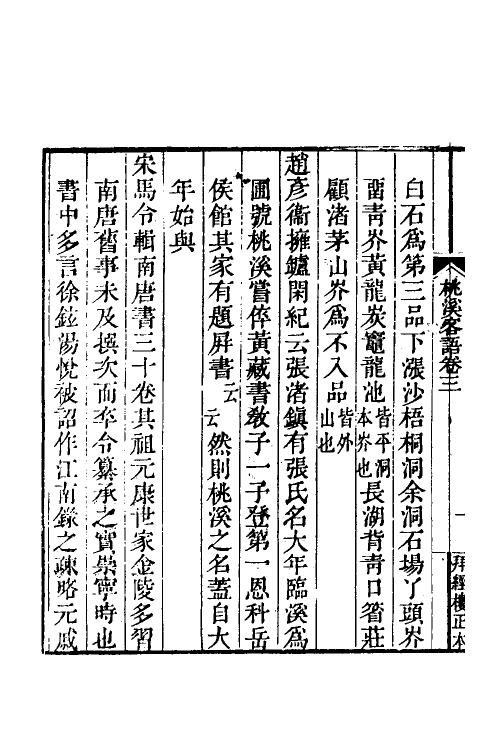 桃溪客語卷三
一
拜經樓正本
白石爲第三品下漲沙梧桐洞余洞石場丫頭岕
凿靑岕黃龍炭竈龍池皆平洞本岕也長湖背靑口䈏莊
顧渚茅山岕爲不入品皆外山也
趙彥衞擁鑪閑紀云張渚鎮有張氏名大年臨溪爲
圃號桃溪嘗倅黃藏書敎子一子登第一恩科岳
侯館其家有題屛書云云然則桃溪之名蓋自大
年始與
宋馬令輯南唐書三十卷其祖元康世家金陵多習
南唐舊事未及撰次而卒令纂承之實崇寧時也
書中多言徐鉉湯悅被詔作江南錄之疎略元戚